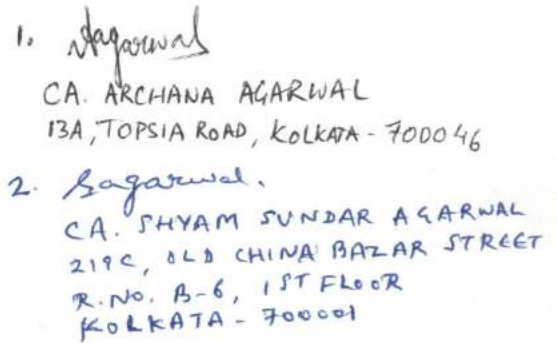 1. Aagarwal
CA. ARCHANA AGARWAL
13A, TOPSIA ROAD, KOLKATA - 700046
2. Sagarwal.
CA. SHYAM SUNDAR AGARWAL
219C, OLD CHINA BAZAR STREET
R.NO. B-6, 1ST FLOOR
KOLKATA - 700001